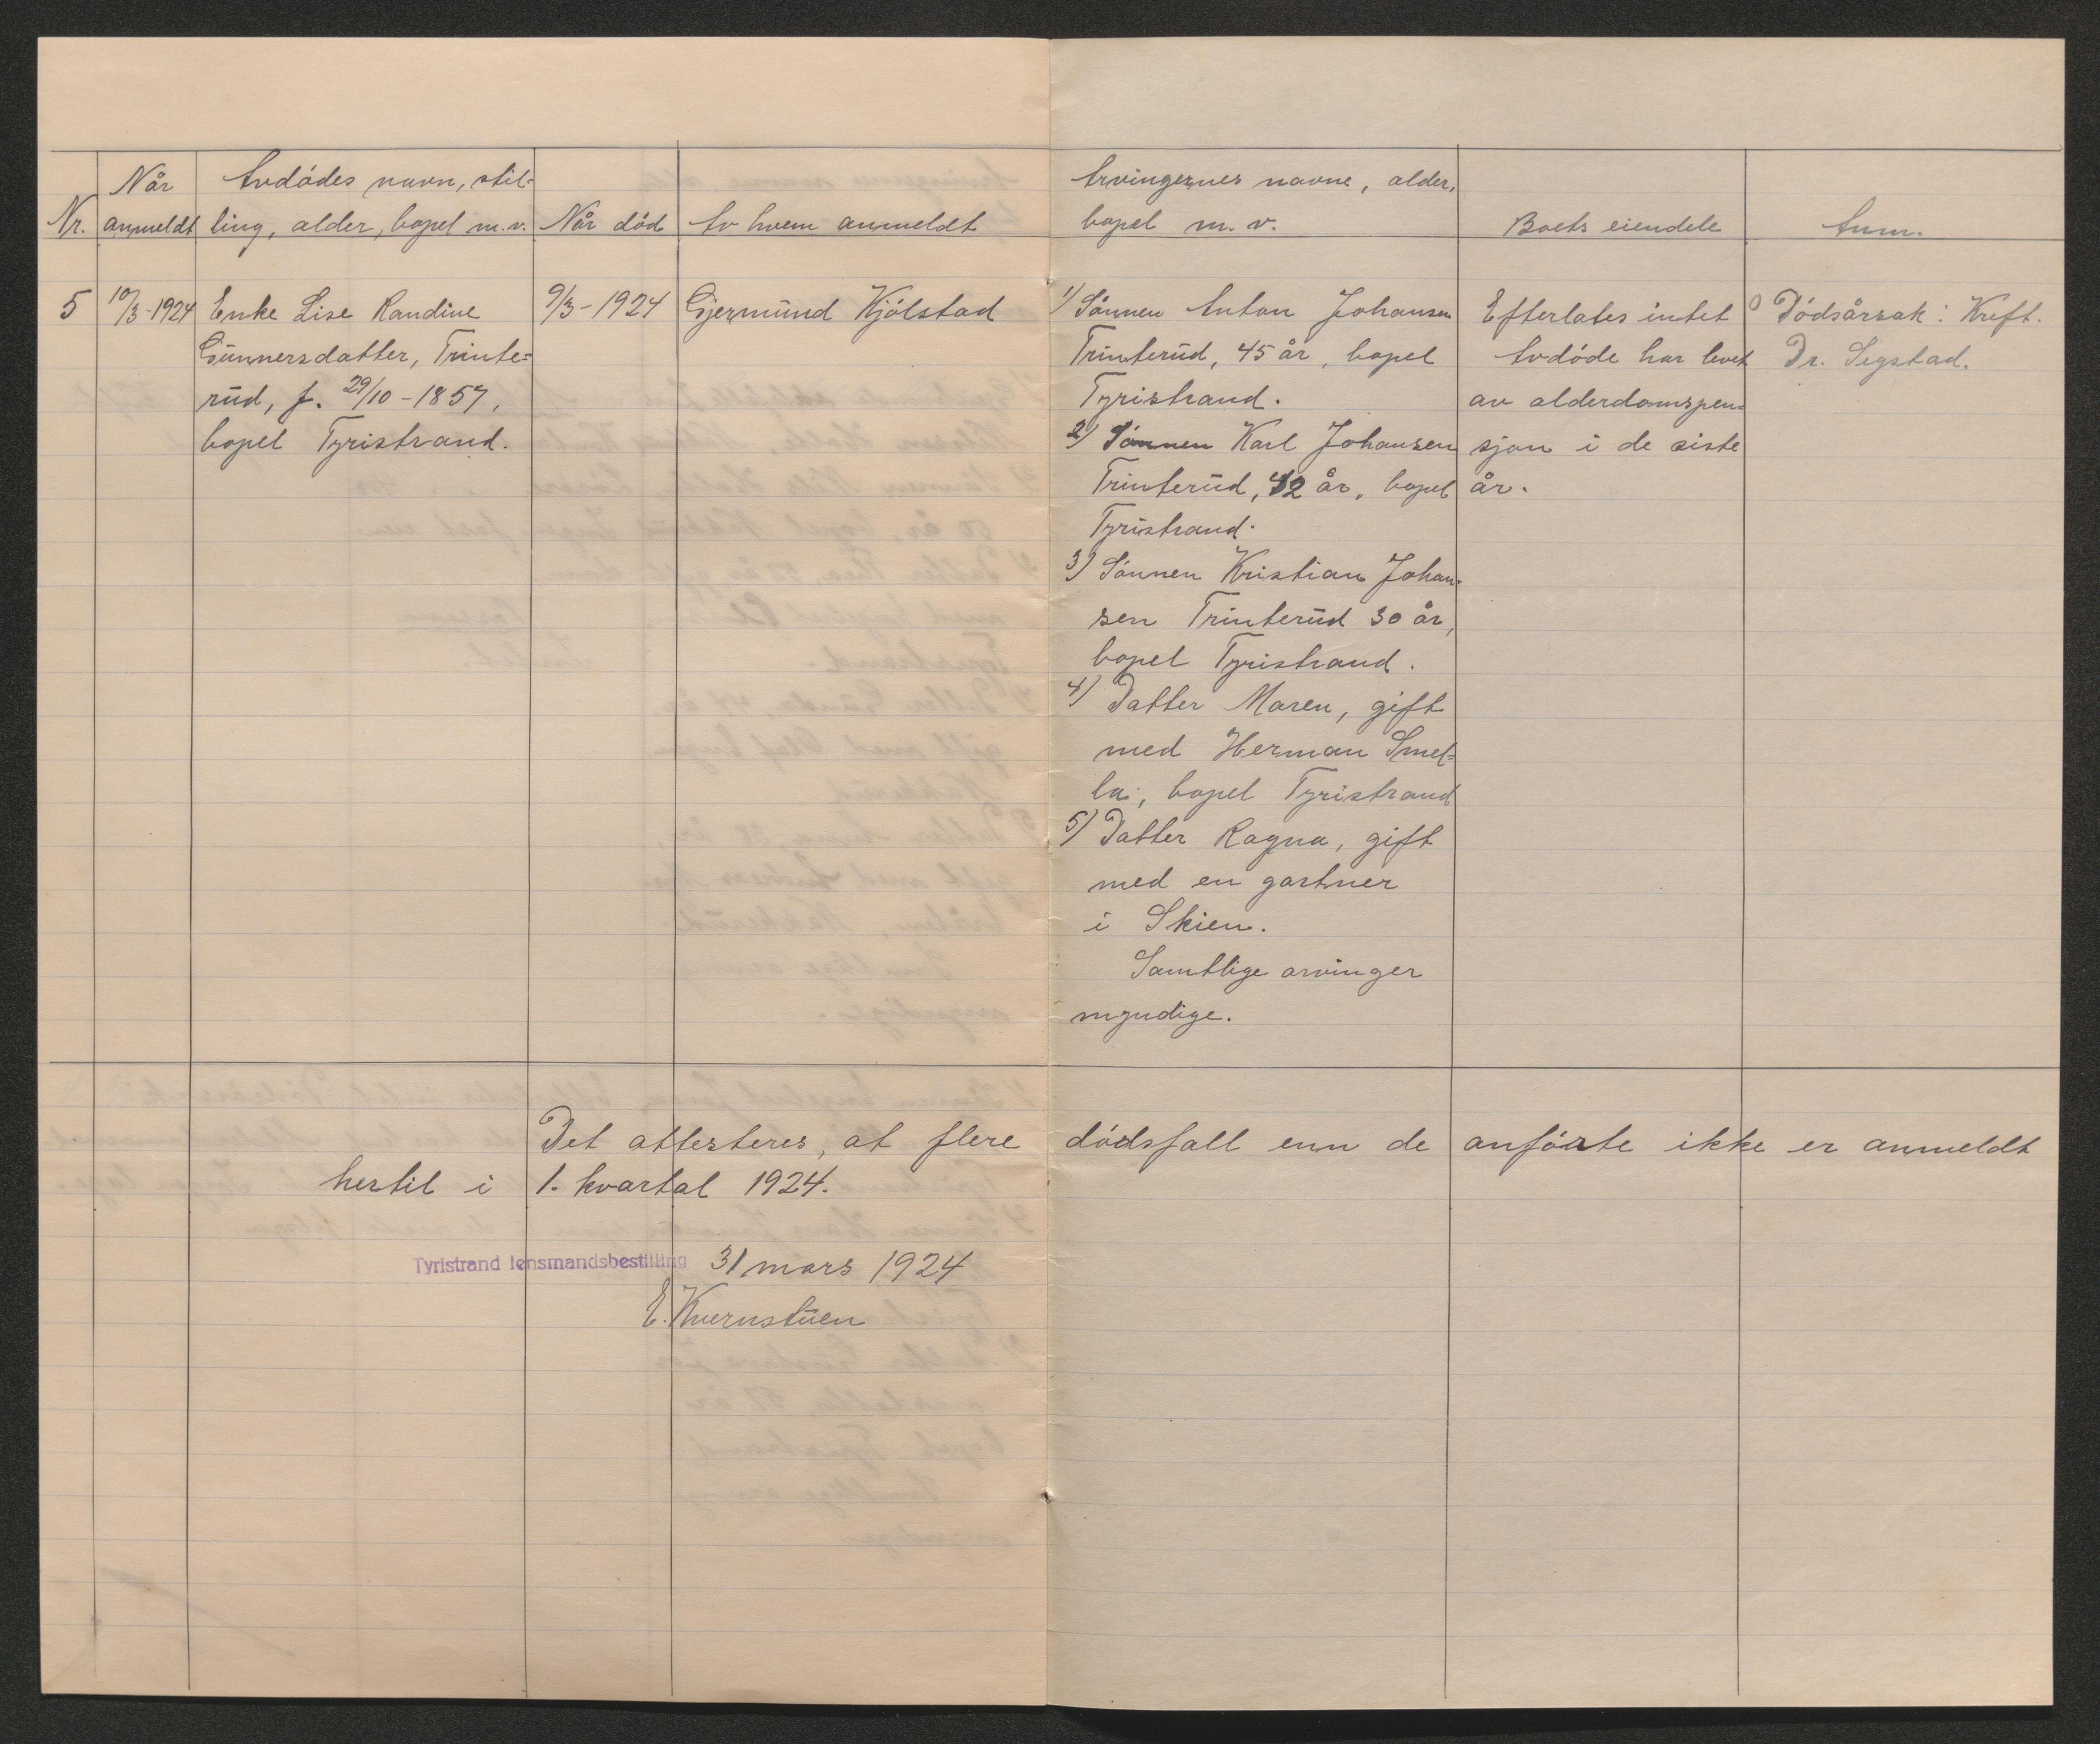 Nr.
Når
anmeldt
Avdödes navn, stil-
ling, alder, bopel m.v.
Når död
Av hvem anmeldt
Arvingernes navne, alder,
bopel m. v.
Boets eiendele
Anm.
5
10/3-1924
Enke Lise Randine
Gunnersdatter, Trinte-
rud, f. 29/10-1857,
bopel Tyristrand.
9/3-1924
Gjermund Kjölstad
1) Sönnen Anton Johansen
Trinterud, 45 år, bopel
Tyristrand.
2) Sönnen Karl Johansen
Trinterud, 42 år, bopel
Tyristrand.
3) Sönnen Kristian Johan-
sen Trinterud 30 år,
bopel Tyristrand.
4) Datter Maren, gift
med Herman Smet-
la, bopel Tyristrand
5) Datter Ragna, gift
med en gartner
i Skien.
Samtlige arvinger
myndige.
Efterlates intet
Avdöde har levet
av alderdomspen-
sjon i de siste
år.
Dödsårsak: Kreft.
Dr. Segstad.
Det attesteres, at flere dödsfall enn de anförte ikke er anmeldt
hertil i 1. kvartal 1924.
Tyristrand lensmandsbestilling 31 mars 1924
E. Kvernstuen